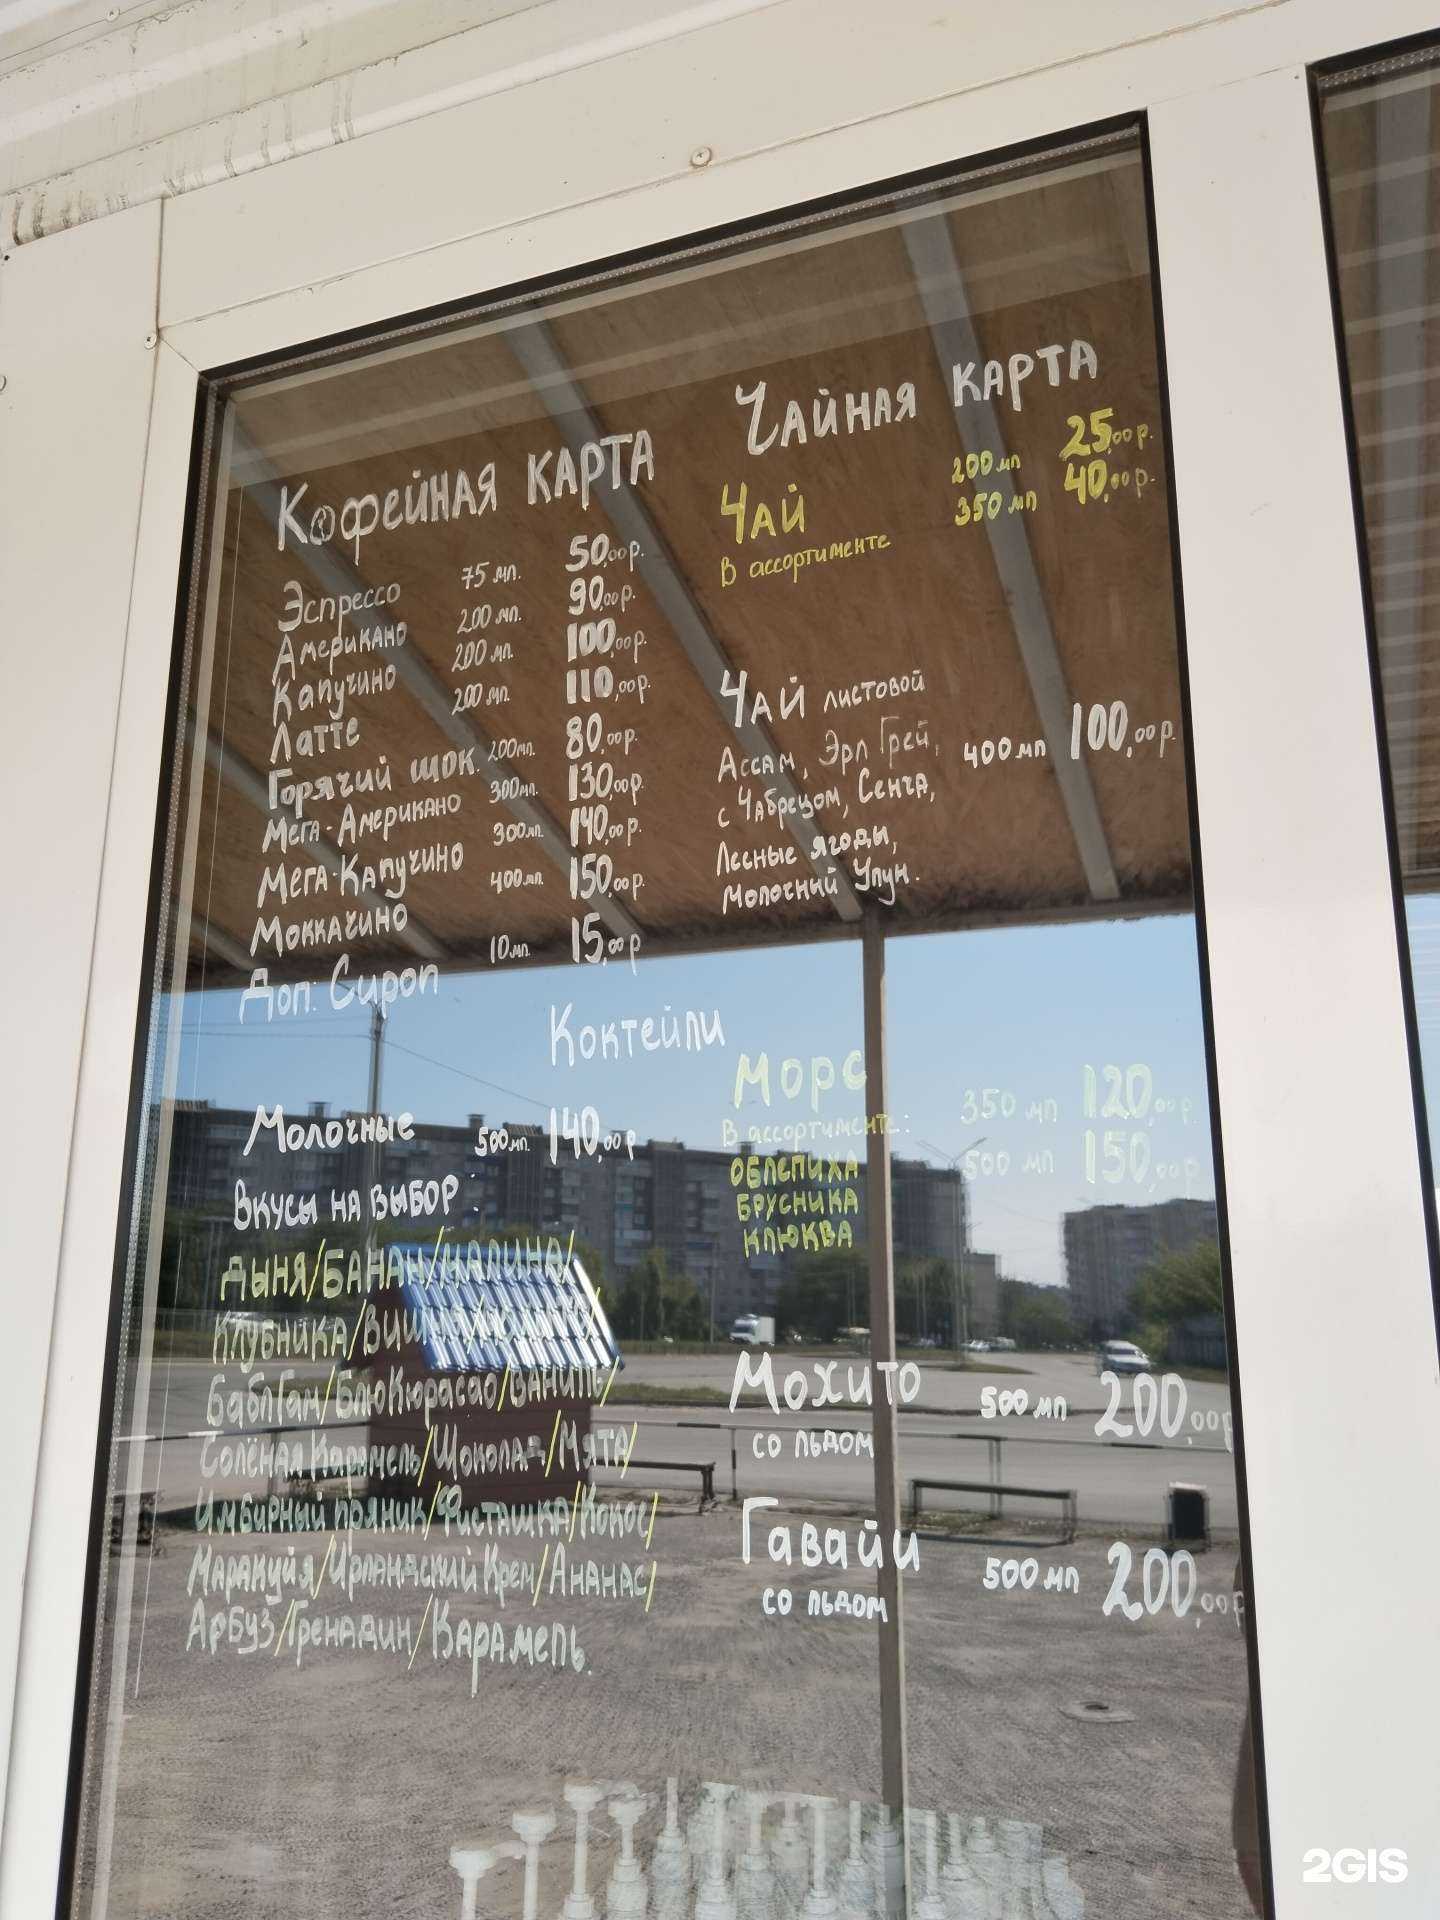 Кофейная карта
Эспрессо 75 мл. 50,00р.
Американо 200 мл. 90,00р.
Капучино 200 мл. 100,00р.
Латте 200 мл. 110,00р.
Горячий шок. 200мл. 80,00р.
Мега-Американо 300мл. 130,00р.
Мега-Капучино 300мл. 140,00р.
Моккачино 400мл. 150,00р.
Доп: Сироп 10мл. 15,00р
Чайная карта
Чай 200 мл 25,00р.
350 мл 40,00р.
В ассортименте
Чай листовой
Ассам, Эрл Грей, 400 мл 100,00р.
с Чабрецом, Сенча,
Лесные ягоды,
Молочный Улун.
Коктейли
Молочные 500мл. 140,00р
Вкусы на выбор:
Дыня/Банан/Малина/
Клубника/Вишня/
Баблгам/БлюКюрасао/Ваниль/
Солёная Карамель/Шоколад/Мята/
Имбирный пряник/Фисташка/Кокос/
Маракуйя/Ирландский Крем/Ананас/
Арбуз/Гренадин/Карамель.
Морс 350 мл 120,00р.
В ассортименте: 500 мл 150,00р
облепиха
брусника
клюква
Мохито 500 мл 200,00р
со льдом
Гавайи 500 мл 200,00р
со льдом
2GIS